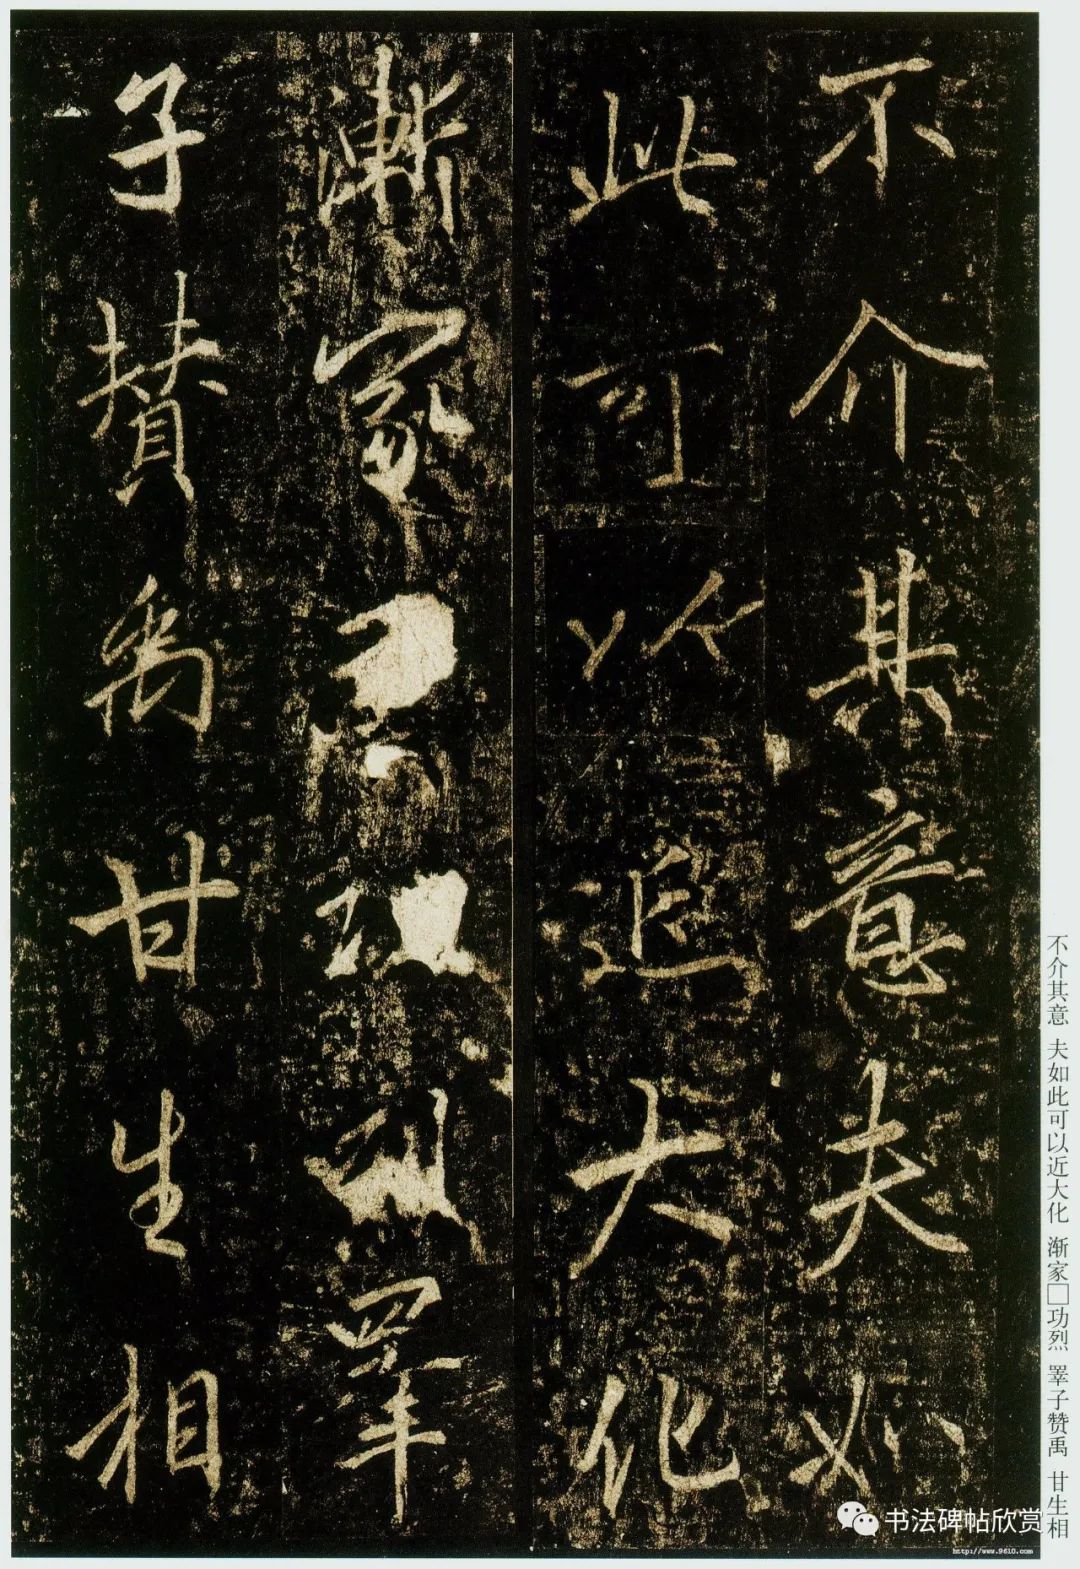 不介其意夫如
此可以近大化
漸家功烈睪
子賛禹甘生相
不介其意 夫如此可以近大化 渐家□功烈 睪子赞禹 甘生相
书法碑帖欣赏
http://www.9610.com